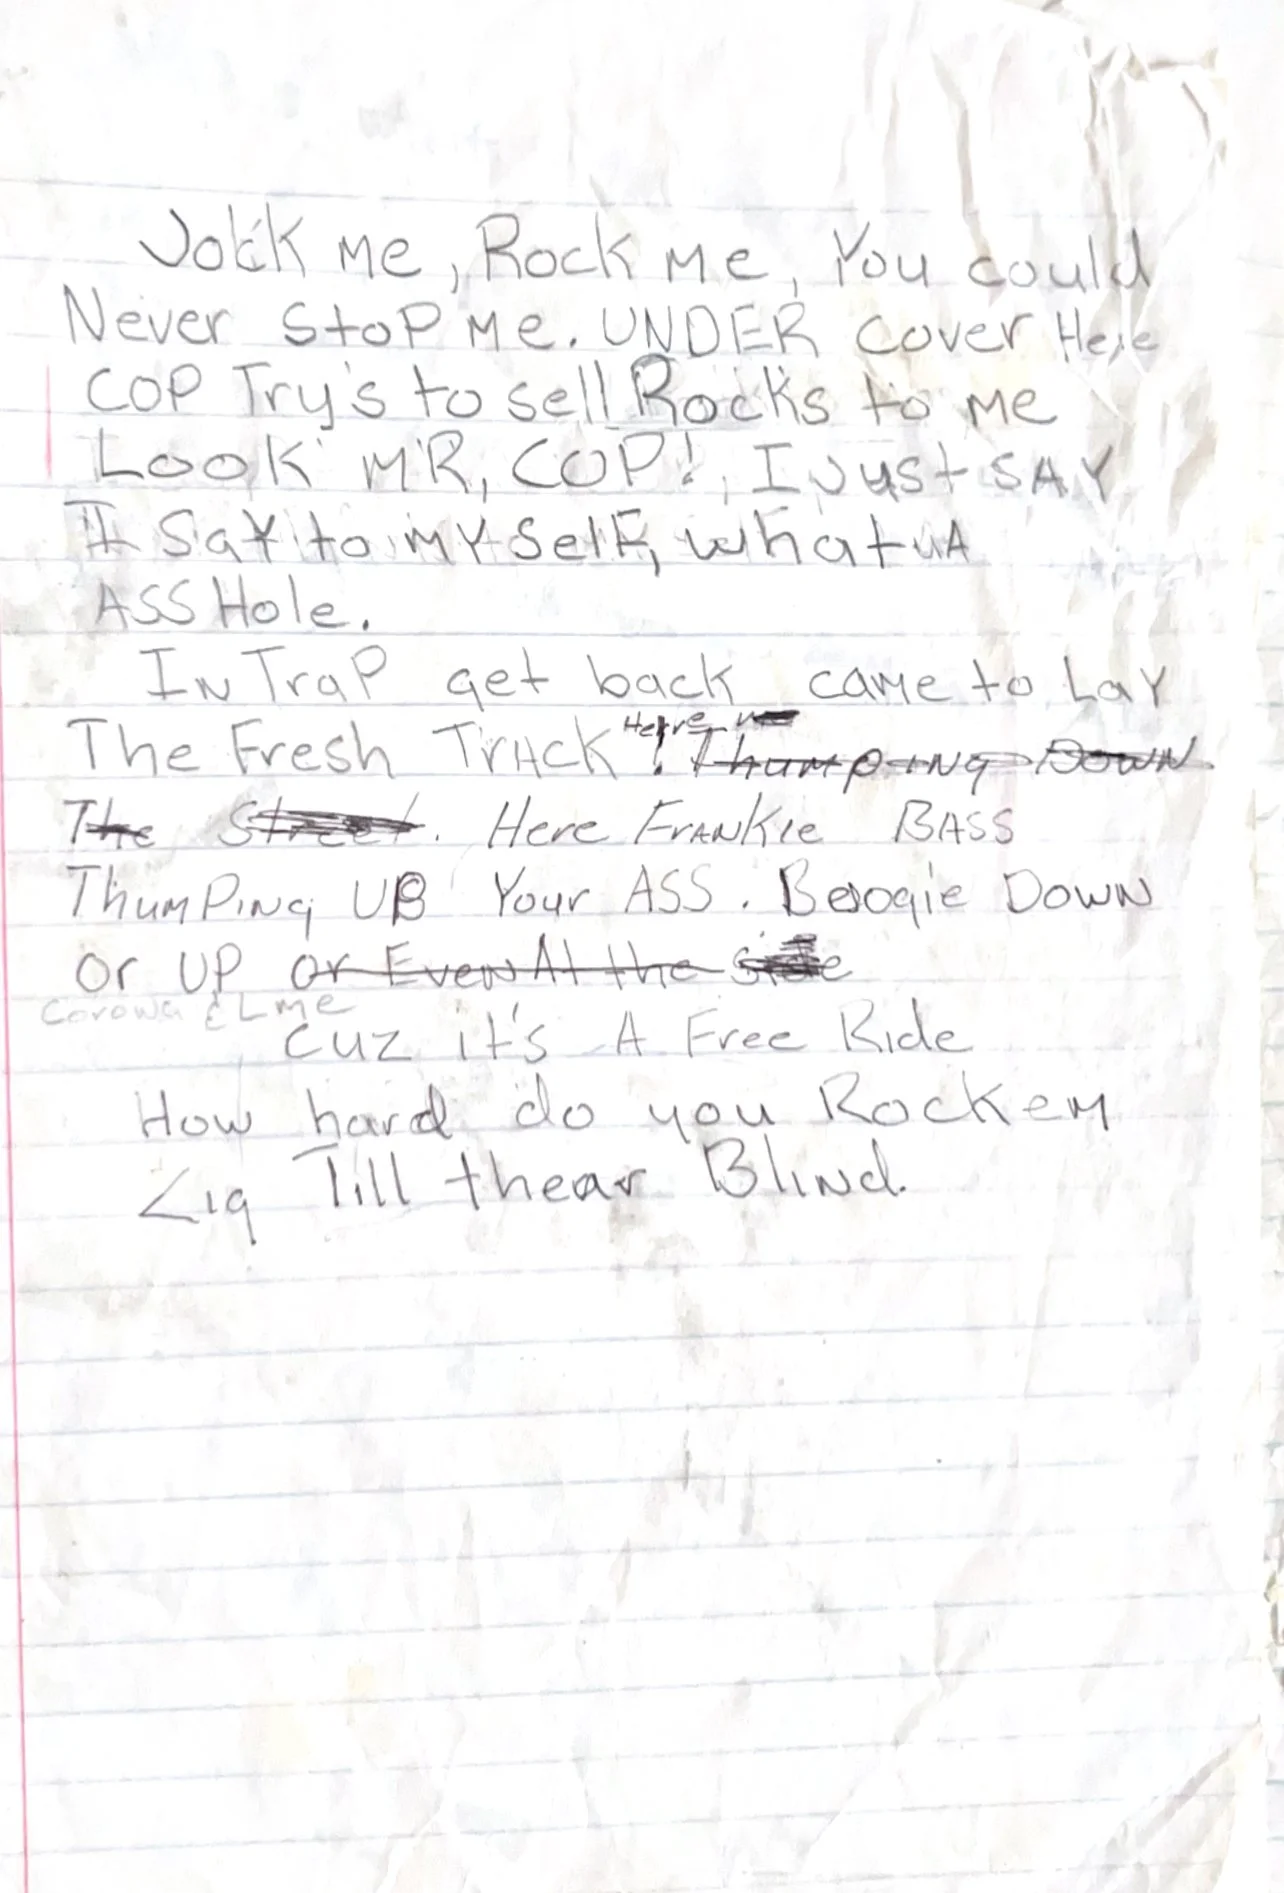 Jock me, Rock me, You could
Never Stop Me. UNDER cover Here
COP Try's to sell Rocks to me
Look MR, COP!, I Just SAY
I Say to MY Self, what A
ASS Hole.
IN Trap get back came to Lay
The Fresh Track! Thumping DOWN
Here
The Street. Here Frankie BASS
Thumping UP Your ASS. Boogie DOWN
or UP or Even At the side
Corona & Lme
Cuz it's A Free Ride
How hard do you Rockem
Zig Till thear Blind.